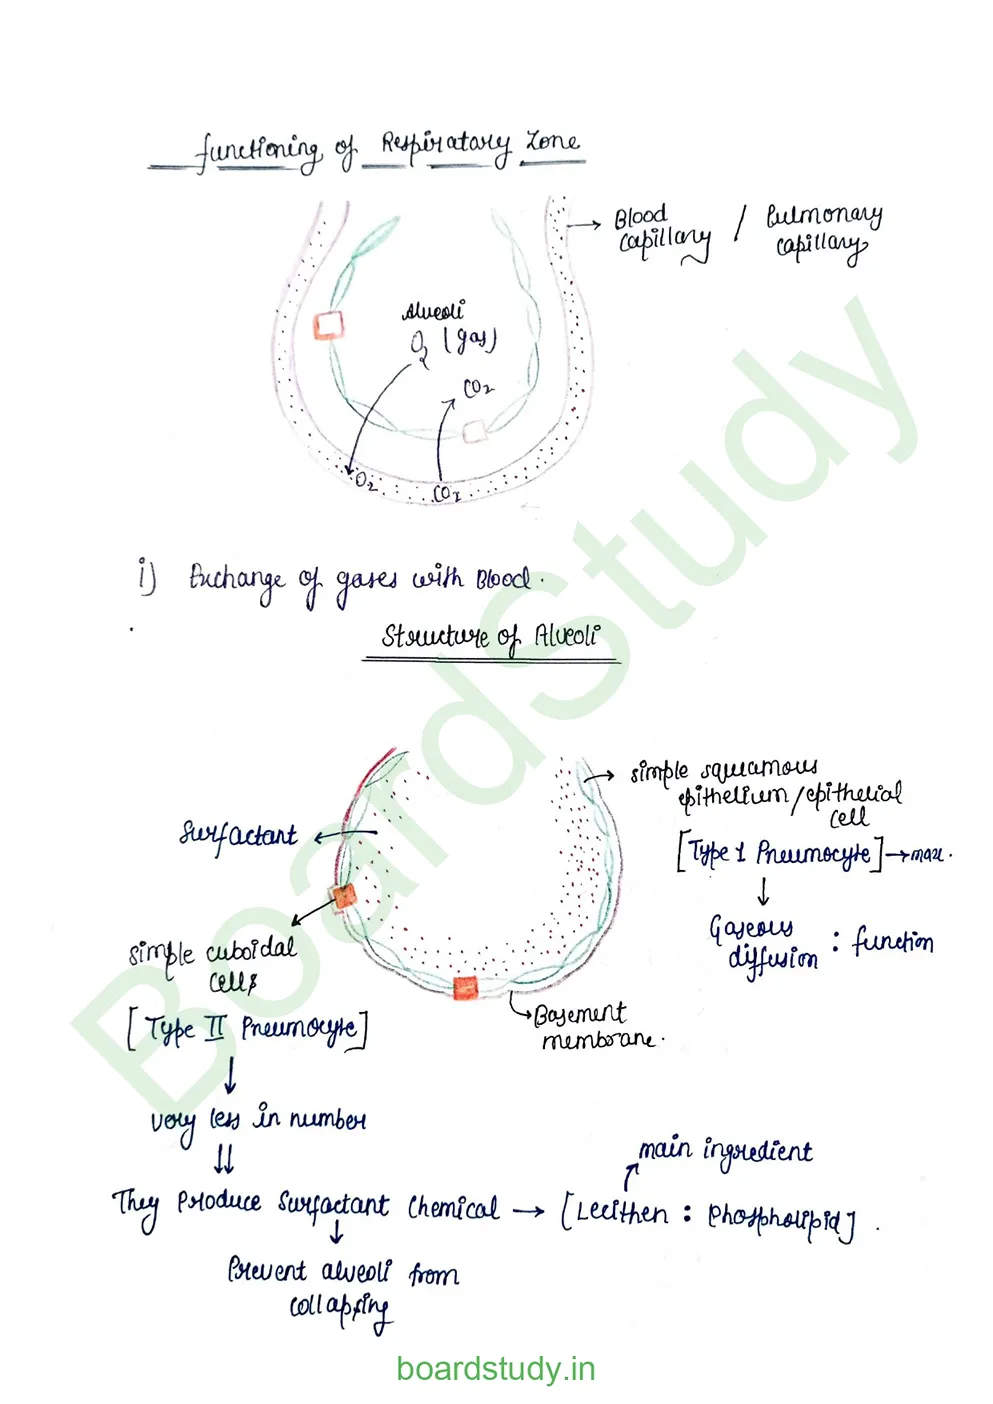 functioning of Respiratory Zone
Blood capillary / Pulmonary capillary
Alveoli
O2 (gas)
CO2
O2
CO2
i) Exchange of gases with Blood.
Structure of Alveoli
simple squamous
epithelium/epithelial
cell
[Type 1 Pneumocyte] → max.
Gaseous
diffusion : function
Surfactant
simple cuboidal
cells
[Type II Pneumocyte]
Basement
membrane.
very less in number
main ingredient
They Produce Surfactant Chemical → [Lecithen : Phospholipid].
Prevent alveoli from
collapsing
BoardStudy
boardstudy.in